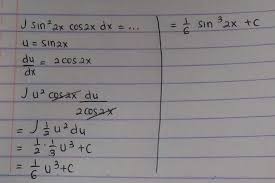 ∫ sin²2x cos2x dx = ...
u = sin2x
du/dx = 2cos2x
∫ u² cos2x du/2cos2x
= ∫ ½ u² du
= ½ · ⅓ u³ + C
= ⅙ u³ + C
= ⅙ sin³2x + C